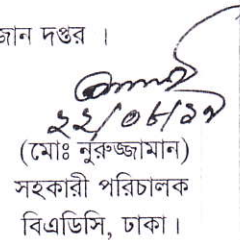 জান দপ্তর ।
২২/০৮/১৭
(মোঃ নুরুজ্জামান)
সহকারী পরিচালক
বিএডিসি, ঢাকা।